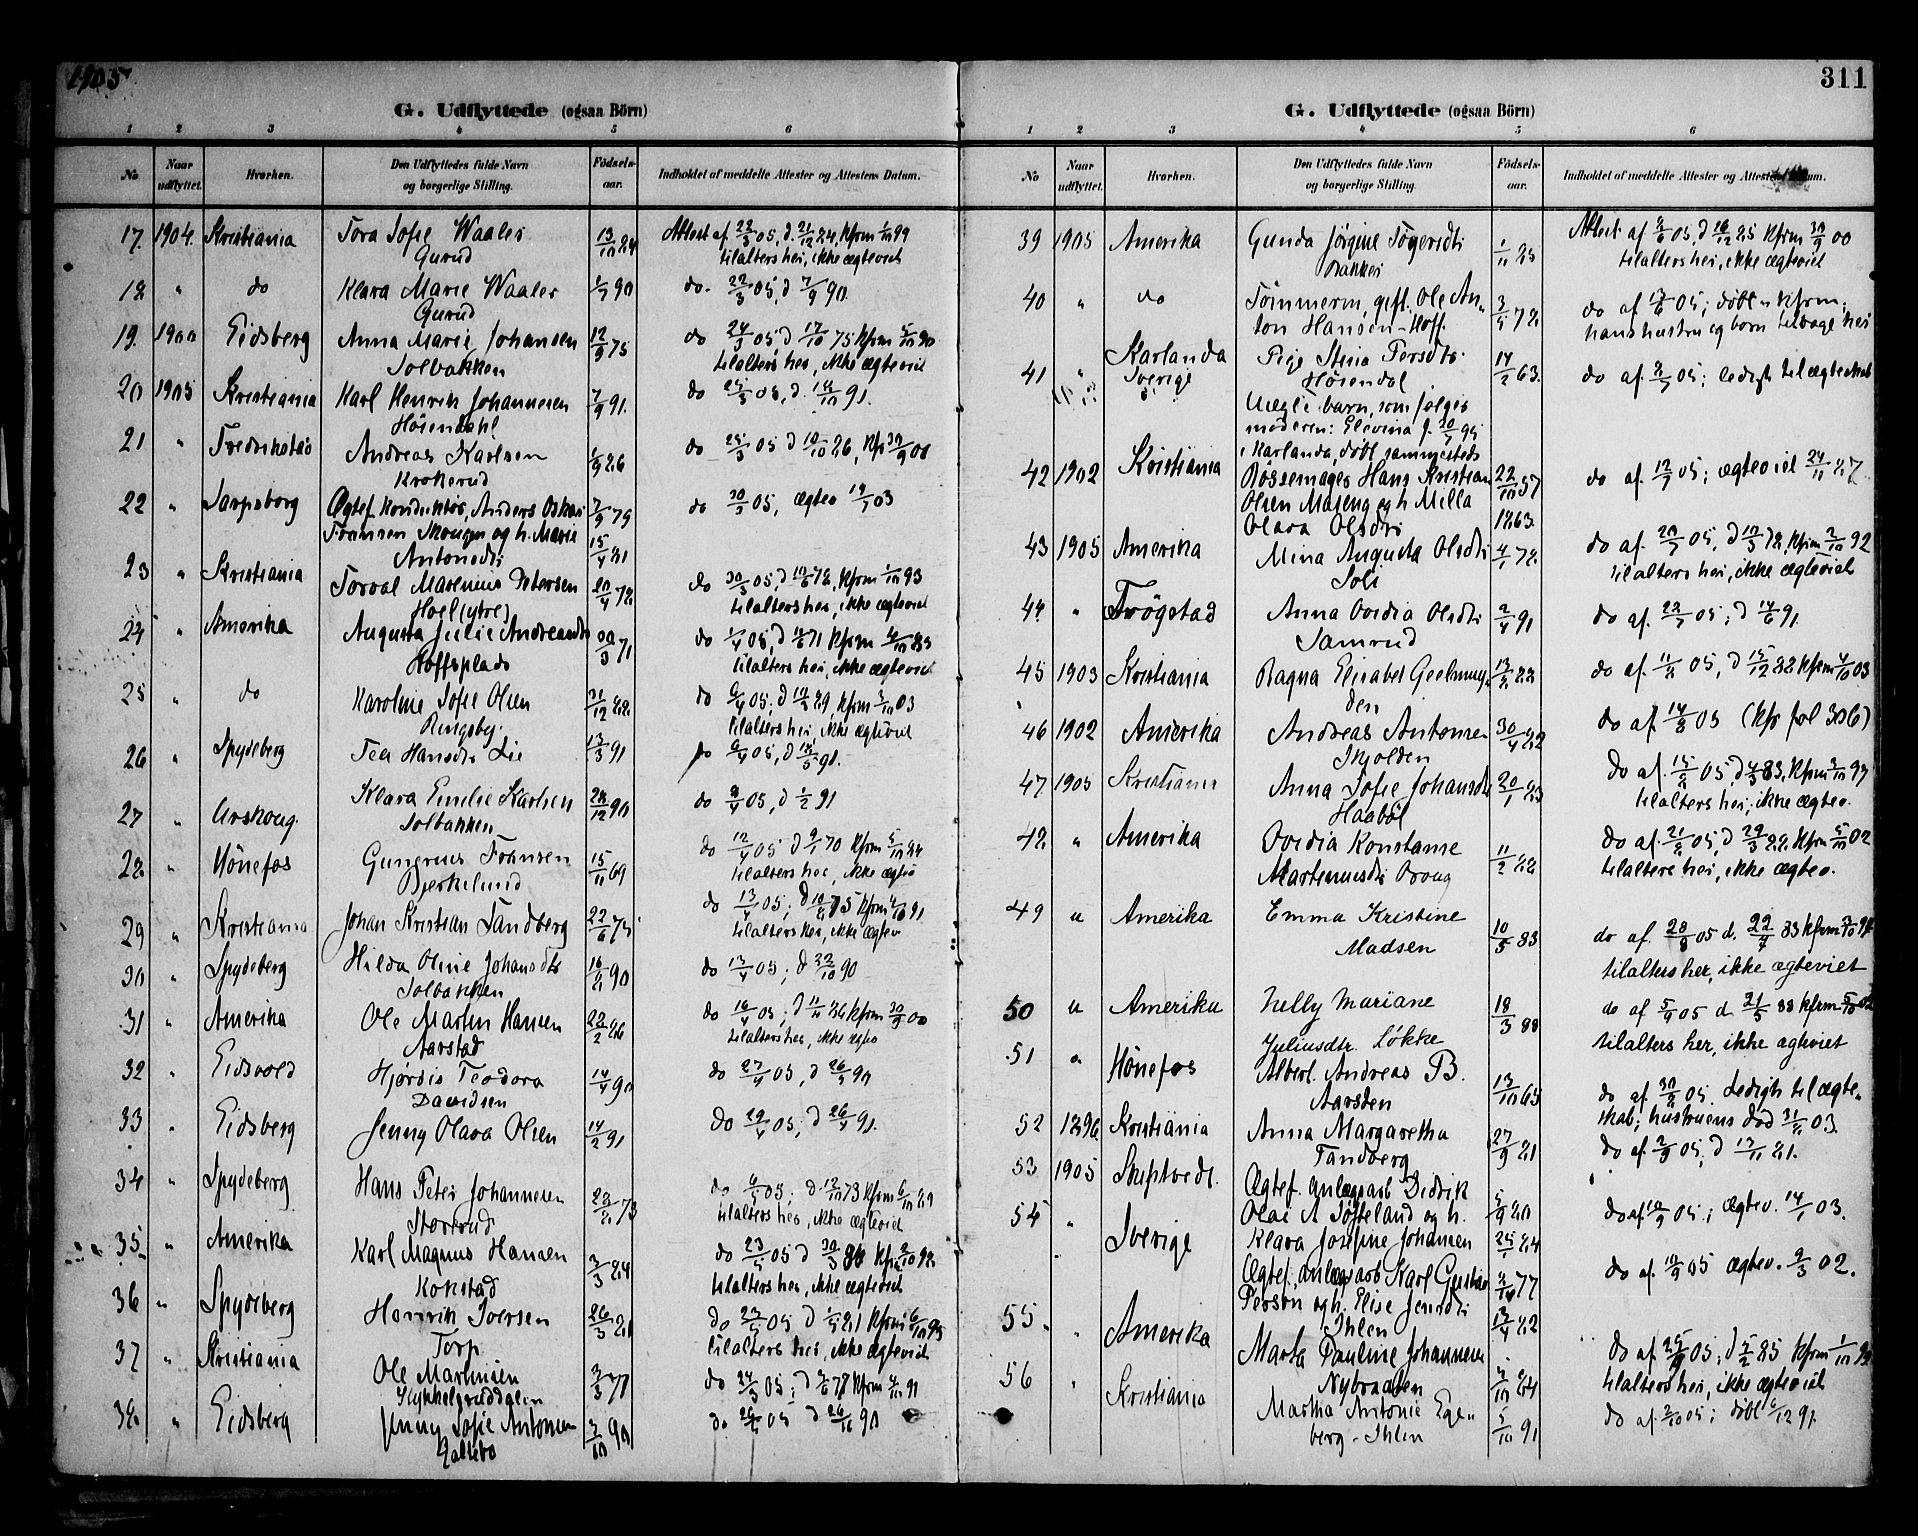 1905
311
G. Udflyttede (ogsaa Börn)
1 2 3 4 5 6
No Naar udflyttet. Hvorhen. Den Udflyttedes fulde Navn og borgerlige Stilling. Födsels-aar. Indholdet af meddelte Attester og Attestens Datum.
17. 1904. Kristiania Tora Sofie Waaler 13/10 84 Attest af 22/3 05, d. 21/12 84, Kfrm 1/10 99
Gurud tilalters her, ikke ægteviet
18 " do Klara Marie Waaler 90 do. 22/3 05, d 7/9 90.
Gurud
19. 1900 Eidsberg Anna Marie Johansen 12/9 75 do 24/3 05, d 17/10 75 kfrm 5/10 90
Solbakken tilalters her, ikke ægteviet
20 1905 Kristiania Karl Henrik Johannesen 7/9 91. do 25/3 05, d. 18/10 91.
Hösendahl
21 " Fredrikstad Andreas Karlsen 86 do 25/3 05 d 10/10 86, Kfr 30/9 00
Krokerud
22 " Sarpsborg Ægtef. Konduktör, Anders Oskar 75 do 30/3 05, ægtev 03
Fransen Skougen og h. Marie 15/4 81
Antonsdtr
23 " Kristiania Torval Marenius Petersen 20/4 72 do 30/3 05, d 72, kfrm 1/10 93
Hoel (ytre) tilalters her, ikke ægteviet
24 " Amerika Augusta Julie Andreasdtr 30/3 71 do 1/4 05, d 71 kfrm
Hoffsplads tilalters her, ikke ægteviet
25 " do Karoline Sofie Olsen 31/12 88. do 6/4 05; d 89, kfrm 03
Ringsby. tilalters her, ikke ægteviet
26 " Spydeberg Tea Hansdtr Lie 13/3 91 do 6/4 05, d 18/5 91.
27 " Urskoug. Klara Emilie Karlsen 28/12 90 do 8/4 05, d 1/2 91
Solbakken
28 " Hönefos Gunerius Fransen 15/11 69 do 12/4 05 d 9/1 70 kfrm 5/10 84
Bjerkelund tilalters her, ikke ægtev
29 " Kristiania Johan Kristian Sandberg 22/6 75 do 13/4 05; d 75 kfrm 91
tilalters her, ikke ægtev
30 " Spydeberg Hilda Oline Johansdtr 16/8 90 do 13/4 05; d 90
Solbakken
31 " Amerika Ole Martin Hansen 86 do 14/4 05; d 11/4 86 kfrm 30/9 00
Aarstad tilalters her, ikke ægtev
32 " Eidsvold Hjördis Teodora 14/4 90 do 27/4 05, d 26/5 90
Davidsen
33 " Eidsberg Jenny Olava Olsen 14/2 91 do 29/4 05; d 26/4 91.
34 " Spydeberg Hans Peter Johannesen 73 do 6/5 05; d 12/10 73 kfrm 6/10 89
Stortrud tilalters her, ikke ægteviet
35. " Amerika Karl Magnus Hansen 3/3 84 do 23/5 05 d 30/3 84 kfrm
Kokstad tilalters her, ikke ægteviet
36 " Spydeberg Henrik Iversen 26/3 81 do 23/5 05 d 81 kfrm 6/10 95
Torp tilalters her, ikke ægteviet
37 " Kristiania Ole Martinsen 77 do 24/5 05; d 77 kfrm 91
Stykkelsruddalen
38. " Eidsberg Jenny Sofie Antonsen 90 do 26/5 05 d 26/11 90
G. Udflyttede (ogsaa Börn)
1 2 3 4 5 6
No Naar udflyttet. Hvorhen. Den Udflyttedes fulde Navn og borgerlige Stilling. Födsels-aar. Indholdet af meddelte Attester og Attestens Datum.
39 1905 Amerika Gunda Jörgine Törgersdtr 1/11 85 Attest af 8/6 05, d 16/12 85 kfrm 30/9 00
Bakker tilalters her, ikke ægteviet
40 " do Tömmerm, gift. Ole An- 3/5 72. do af 13/6 05; döbt n kfrm;
ton Hansen-Hoff. hans hustru og born tilbage her
41 " Karlanda Pige Stina Persdtr. 14/2 63. do af 8/7 05; ledigh til ægteskab
Sverige Hösendal
Uægte barn, som fölger
moderen: Elevina f. 20/7 95
i Karlanda, döbt sammesteds
42 1902 Kristiania Börsemager Hans Kristian 22/10 57 do af 12/7 05; ægteviet 24/11 87
Olsen Maseng og h Milla
Olava Olsdtr 1863.
43 1905 Amerika Mina Augusta Olsdtr 78. do af 20/7 05, d 78, kfrm 2/10 92
Soli tilalters her, ikke ægteviet
44 " Trögstad Anna Ovidia Olsdtr 2/4 91 do af 22/7 05; d 14/6 91.
Samrud
45 1903 Kristiania Ragna Elisabet Geelmuy- 13/8 88 do af 11/8 05, d 15/12 88 kfrm 4/10 03
den
46 1902 Amerika Andreas Antonsen 30/4 82 do af 14/8 05 (kfr fol 306)
Skjolden
47 1905 Kristiania Anna Sofie Johansdtr 20/1 83 do af. 15/8 05 d 4/3 83, kfrm 97
Haaböl tilalters her; ikke ægtev.
48. " Amerika Ovidia Konstanse 11/2 88 do af. 21/8 05, d 29/3 88. kfrm 5/10 02
Martinusdtr Oroug tilalters her, ikke ægtev.
49 " Amerika Emma Kristine 10/5 83 do af. 28/8 05 d. 22/7 83 kfrm
Madsen tilalters her, ikke ægteviet
50 " Amerika Nelly Mariane 18/3 88 do af 5/9 05 d 21/5 88 kfrm 5/10 02
Juliusdtr. Lökke tilalters her, ikke ægteviet
51 " Hönefos Albert. Andreas B. 13/10 65 do af. 30/8 05. Ledigh til ægte-
Aarsten skab; hustruens död 31/8 03.
52 1896 Kristiania Anna Margaretha 27/9 81 do af. 2/9 05; d 13/11 81.
Tandberg
53 1905 Skiptvedt. Ægtef. anlægsarb Didrik
Olai A Töfteland og h. 5/9 80 do af 18/9 05; ægtev. 14/1 03.
54 " Sverige Klara Josefine Johansen 25/1 84
Ægtef. anlægsarb Karl Gustav 77 do af. 18/9 05 ægtev. 9/3 02.
Person og h. Elise Jensdtr
Ihlen 13/4 82
55. " Amerika Marta Pauline Johannesen 84 do af 25/9 05; d 85 kfrm 1/10 99
Nybraaten tilalters her, ikke ægteviet
56 " Kristiania Martha Antonie Ege- 5/10 91 do af. 05; döbt 6/12 91.
berg-Ihlen